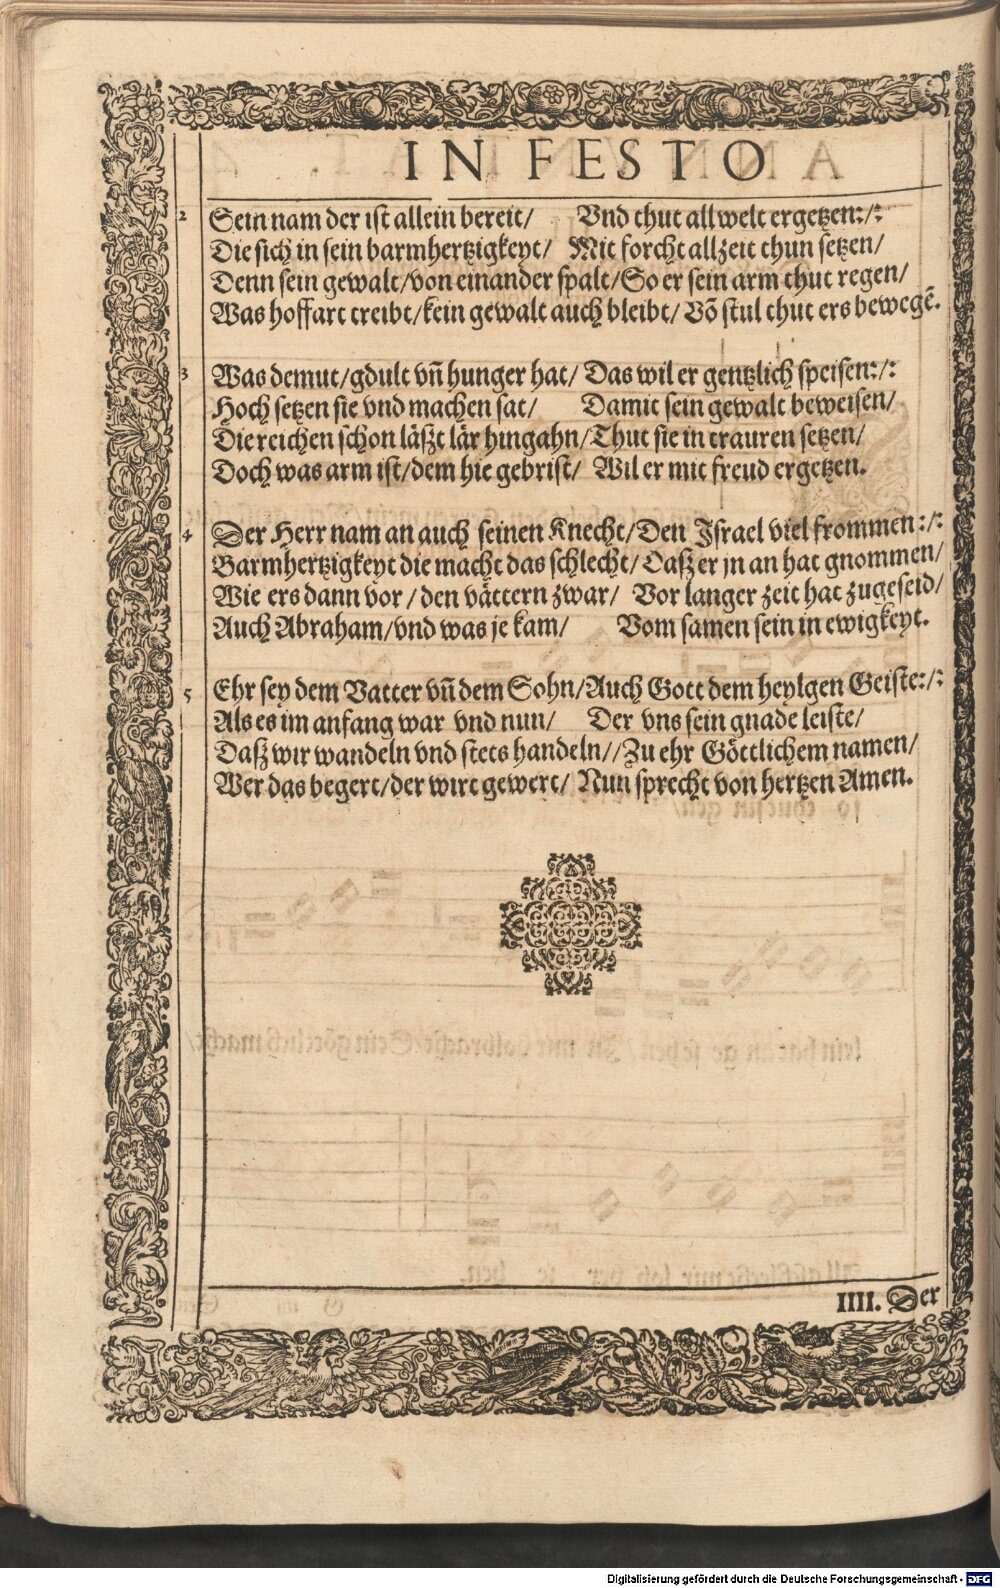 IN FESTO
2 Sein nam der ist allein bereit/ Vnd thut all welt ergetzen:/:
Die sich in sein barmhertzigkeyt/ Mit forcht allzeit thun setzen/
Denn sein gewalt/von einander spalt/So er sein arm thut regen/
Was hoffart treibt/kein gewalt auch bleibt/ Võ stul thut ers bewegẽ.
3 Was demut/gdult vñ hunger hat/ Das wil er gentzlich speisen:/:
Hoch setzen sie vnd machen sat/ Damit sein gewalt beweisen/
Die reichen schon läßt lär hingahn/Thut sie in trauren setzen/
Doch was arm ist/dem hie gebrist/ Wil er mit freud ergetzen.
4 Der Herr nam an auch seinen Knecht/Den Israel viel frommen:/:
Barmhertzigkeyt die macht das schlecht/Daß er jn an hat gnommen/
Wie ers dann vor/den vättern zwar/ Vor langer zeit hat zugeseid/
Auch Abraham/vnd was je kam/ Vom samen sein in ewigkeyt.
5 Ehr sey dem Vatter vñ dem Sohn/Auch Gott dem heylgen Geiste:/:
Als es im anfang war vnd nun/ Der vns sein gnade leiste/
Daß wir wandeln vnd stets handeln//Zu ehr Göttlichem namen/
Wer das begert/der wirt gewert/ Nun sprecht von hertzen Amen.
IIII. Der
Digitalisierung gefördert durch die Deutsche Forschungsgemeinschaft - DFG